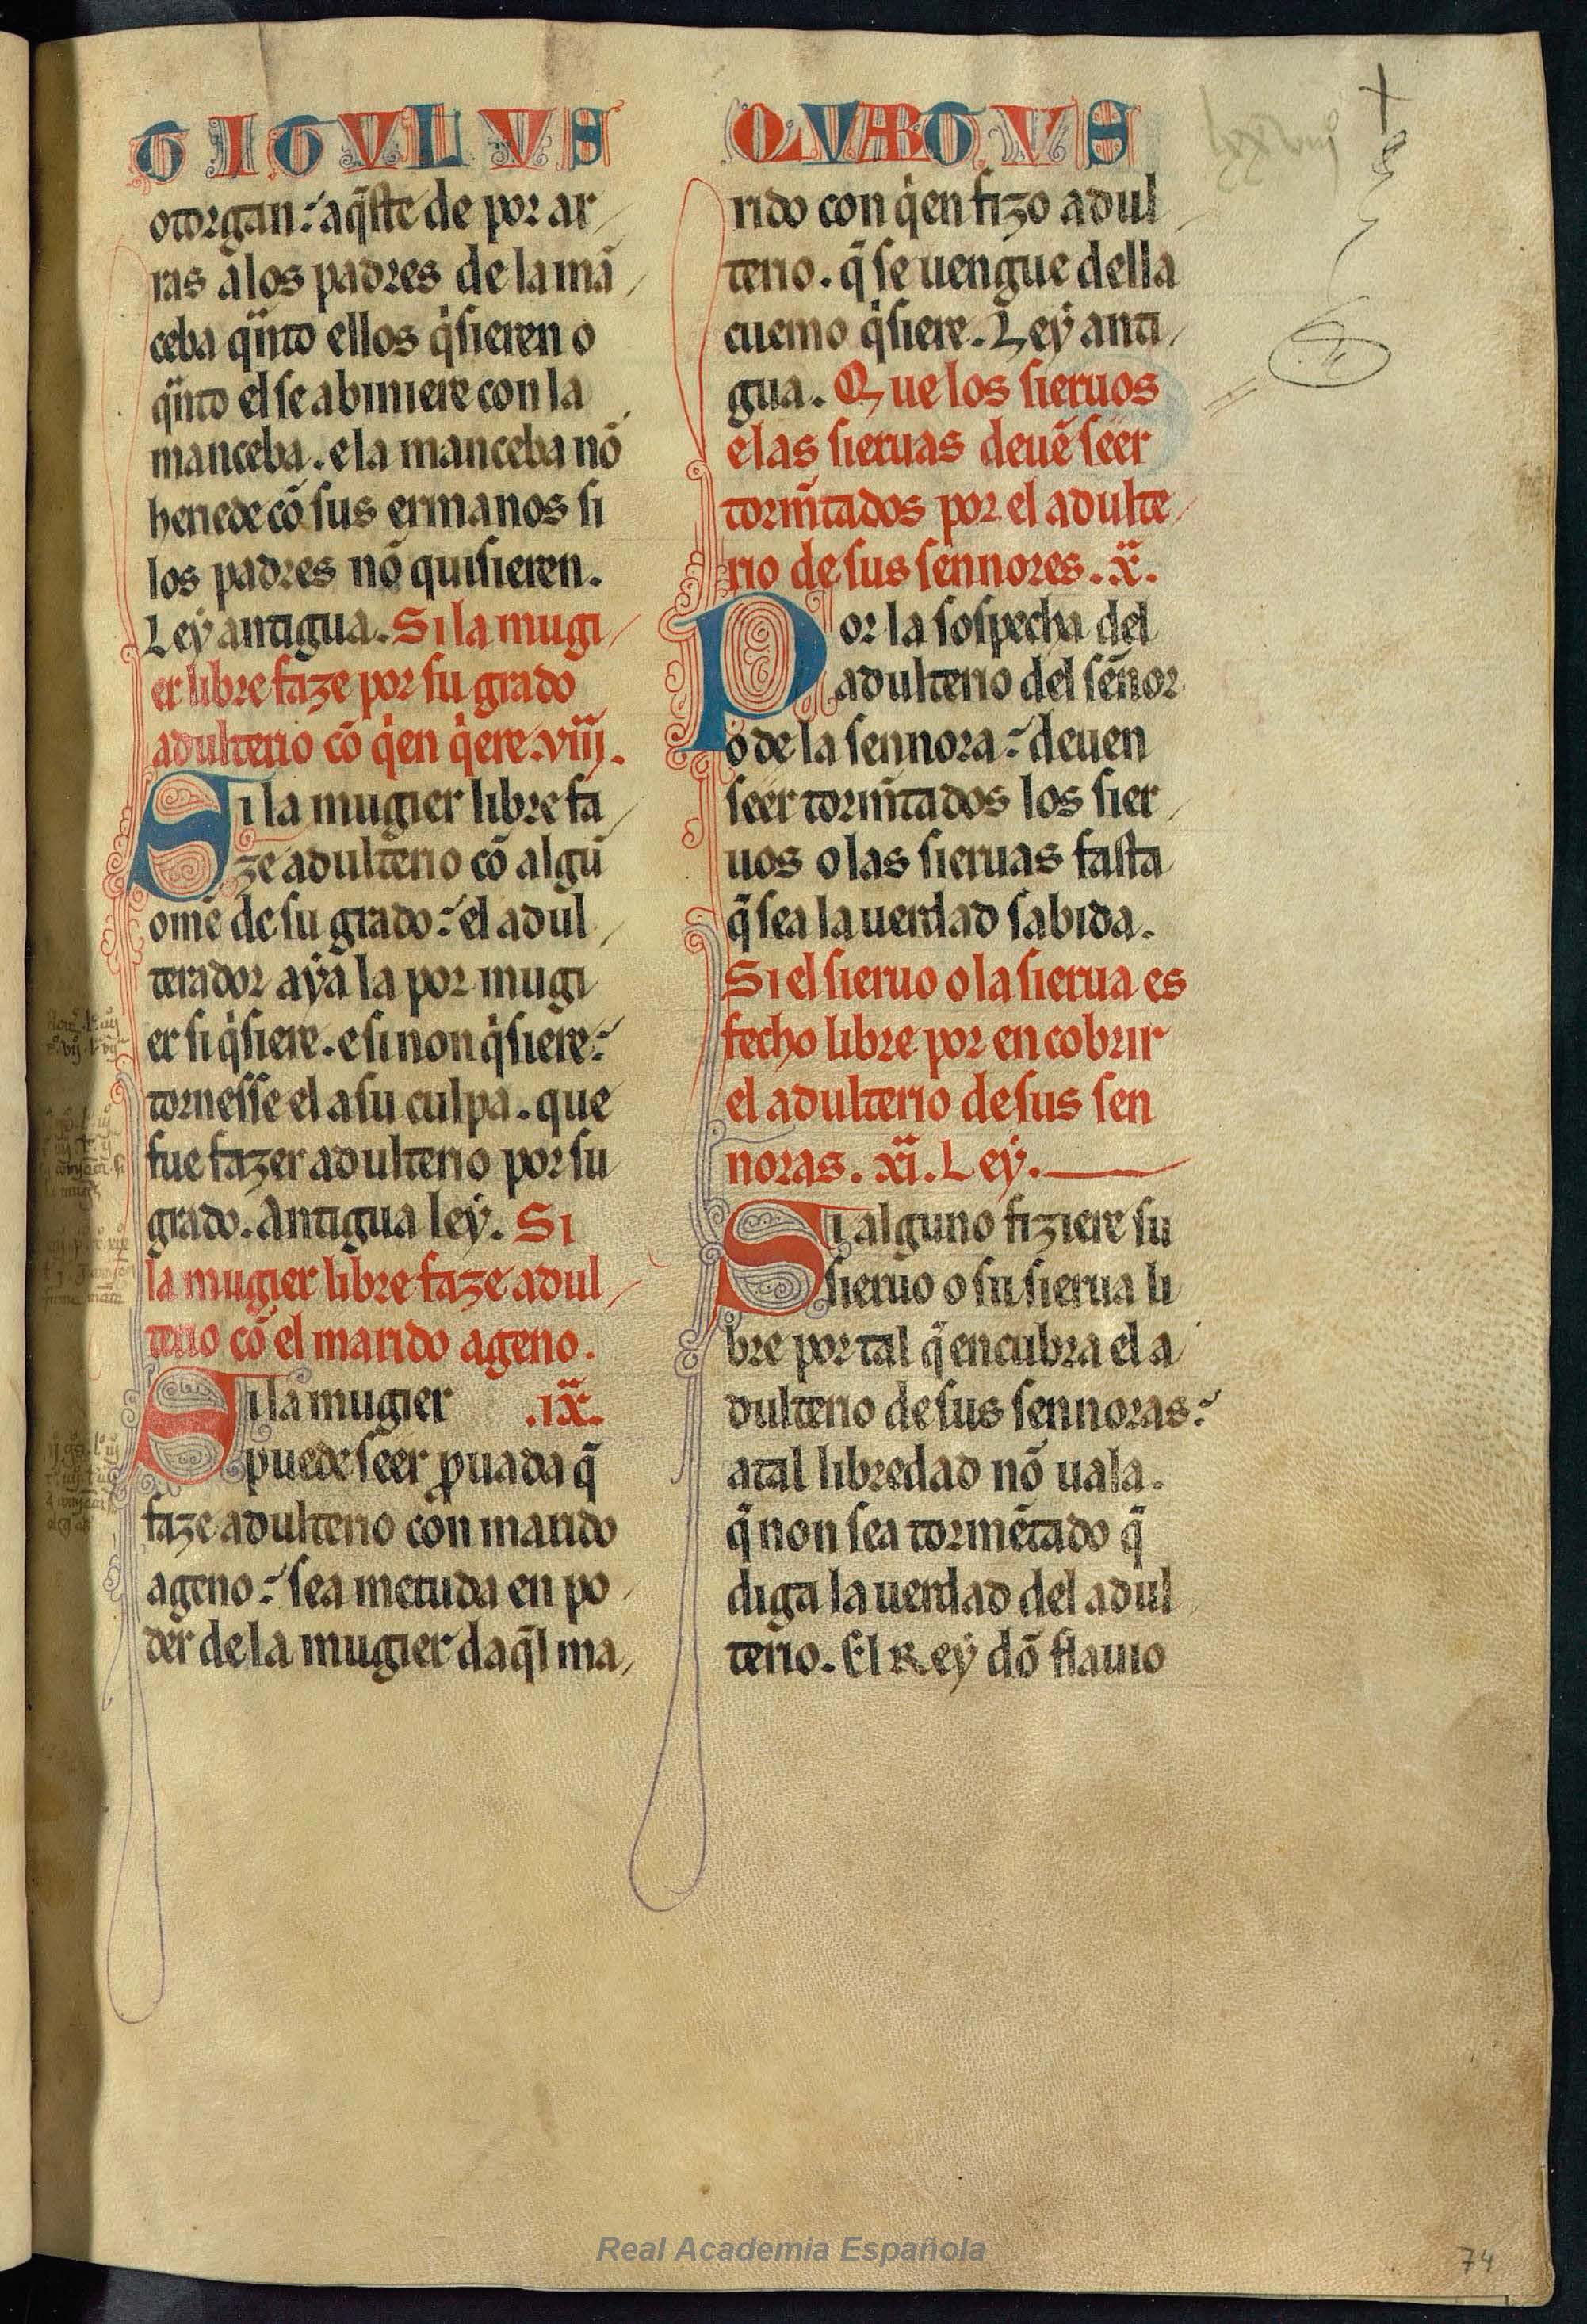 TITVLVS QVARTVS
otorgan: aq̃ste de por ar
ras alos padres de la mã
ceba q̈nto ellos q̇sieren o
q̈nto el se abiniere con la
manceba. e la manceba nõ
heriede cõ sus ermanos si
los padres nõ quisieren.
Ley antigua. Si la mugi
er libre faze por su grado
adulterio cõ q̇en q̇ere. viij.
Si la mugier libre fa
ze adulterio cõ algũ
omẽ de su grado: el adul
terador ayã la por mugi
er si q̇siere. e si non q̇siere:
tornesse el a su culpa. que
fue fazer adulterio por su
grado. Antigua ley. Si
la mugier libre faze adul
terio cõ el marido ageno.
Si la mugier .ix.
puede seer ꝓuada q̃
faze adulterio con marido
ageno: sea metuda en po
der de la mugier daq̃l ma
rido con q̇en fizo adul
terio. q̃ se uengue della
cuemo q̇siere. Ley anti
gua. Que los sieruos
e las sieruas deuẽ seer
torm̃tados por el adulte
rio de sus sennores. x.
Por la sospecha del
adulterio del señor
o de la sennora: deuen
seer torm̃tados los sier
uos o las sieruas fasta
q̃ sea la uerdad sabida.
Si el sieruo o la sierua es
fecho libre por encobrir
el adulterio de sus sen
noras. xi. Ley.
Si alguno fiziere su
sieruo o su sierua li
bre por tal q̃ encubra el a
dulterio de sus sennoras:
atal libredad nõ uala.
q̃ non sea tormẽtado q̃
diga la uerdad del adul
terio. El Rey dõ flauio
Real Academia Española
74